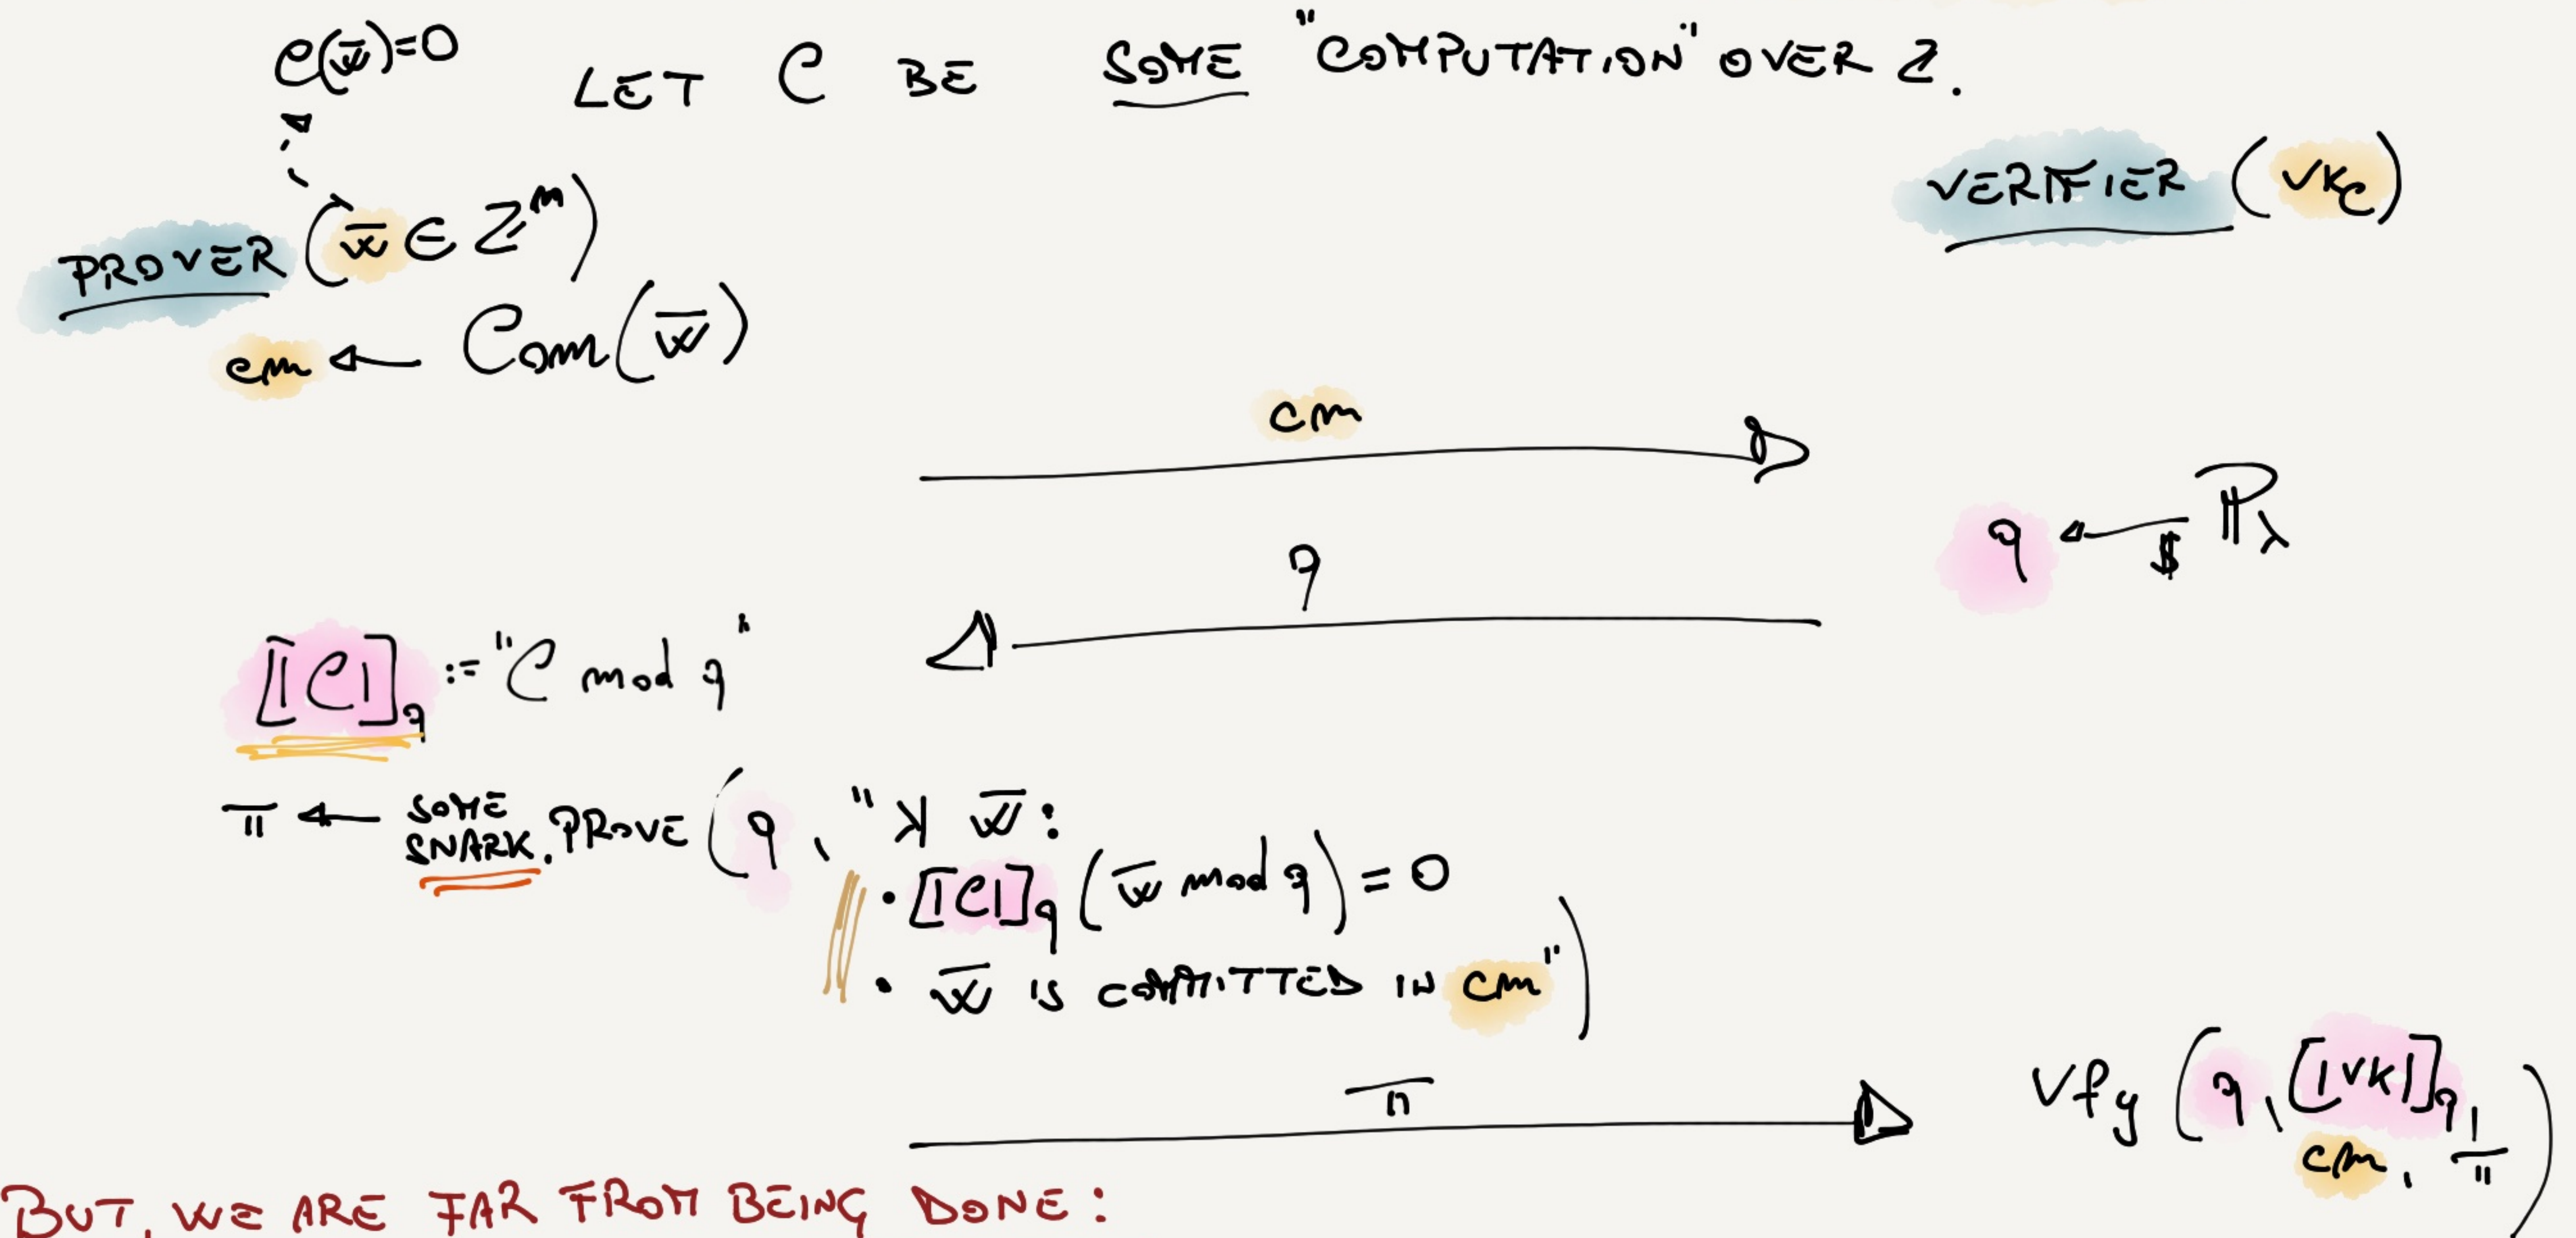 C(w̅)=0 LET C BE SOME "COMPUTATION" OVER Z.
PROVER (w̅ ∈ Z^m)
VERIFIER (vk_C)
cm ← Com(w̅)
cm
q ←$ ℙ_λ
q
[|C|]_q := "C mod q"
π ← SOME SNARK.PROVE (q, "∃ w̅:
• [|C|]_q (w̅ mod q) = 0
• w̅ IS COMMITTED IN cm")
π
Vfy (q, [|vk|]_q, cm, π)
BUT, WE ARE FAR FROM BEING DONE: